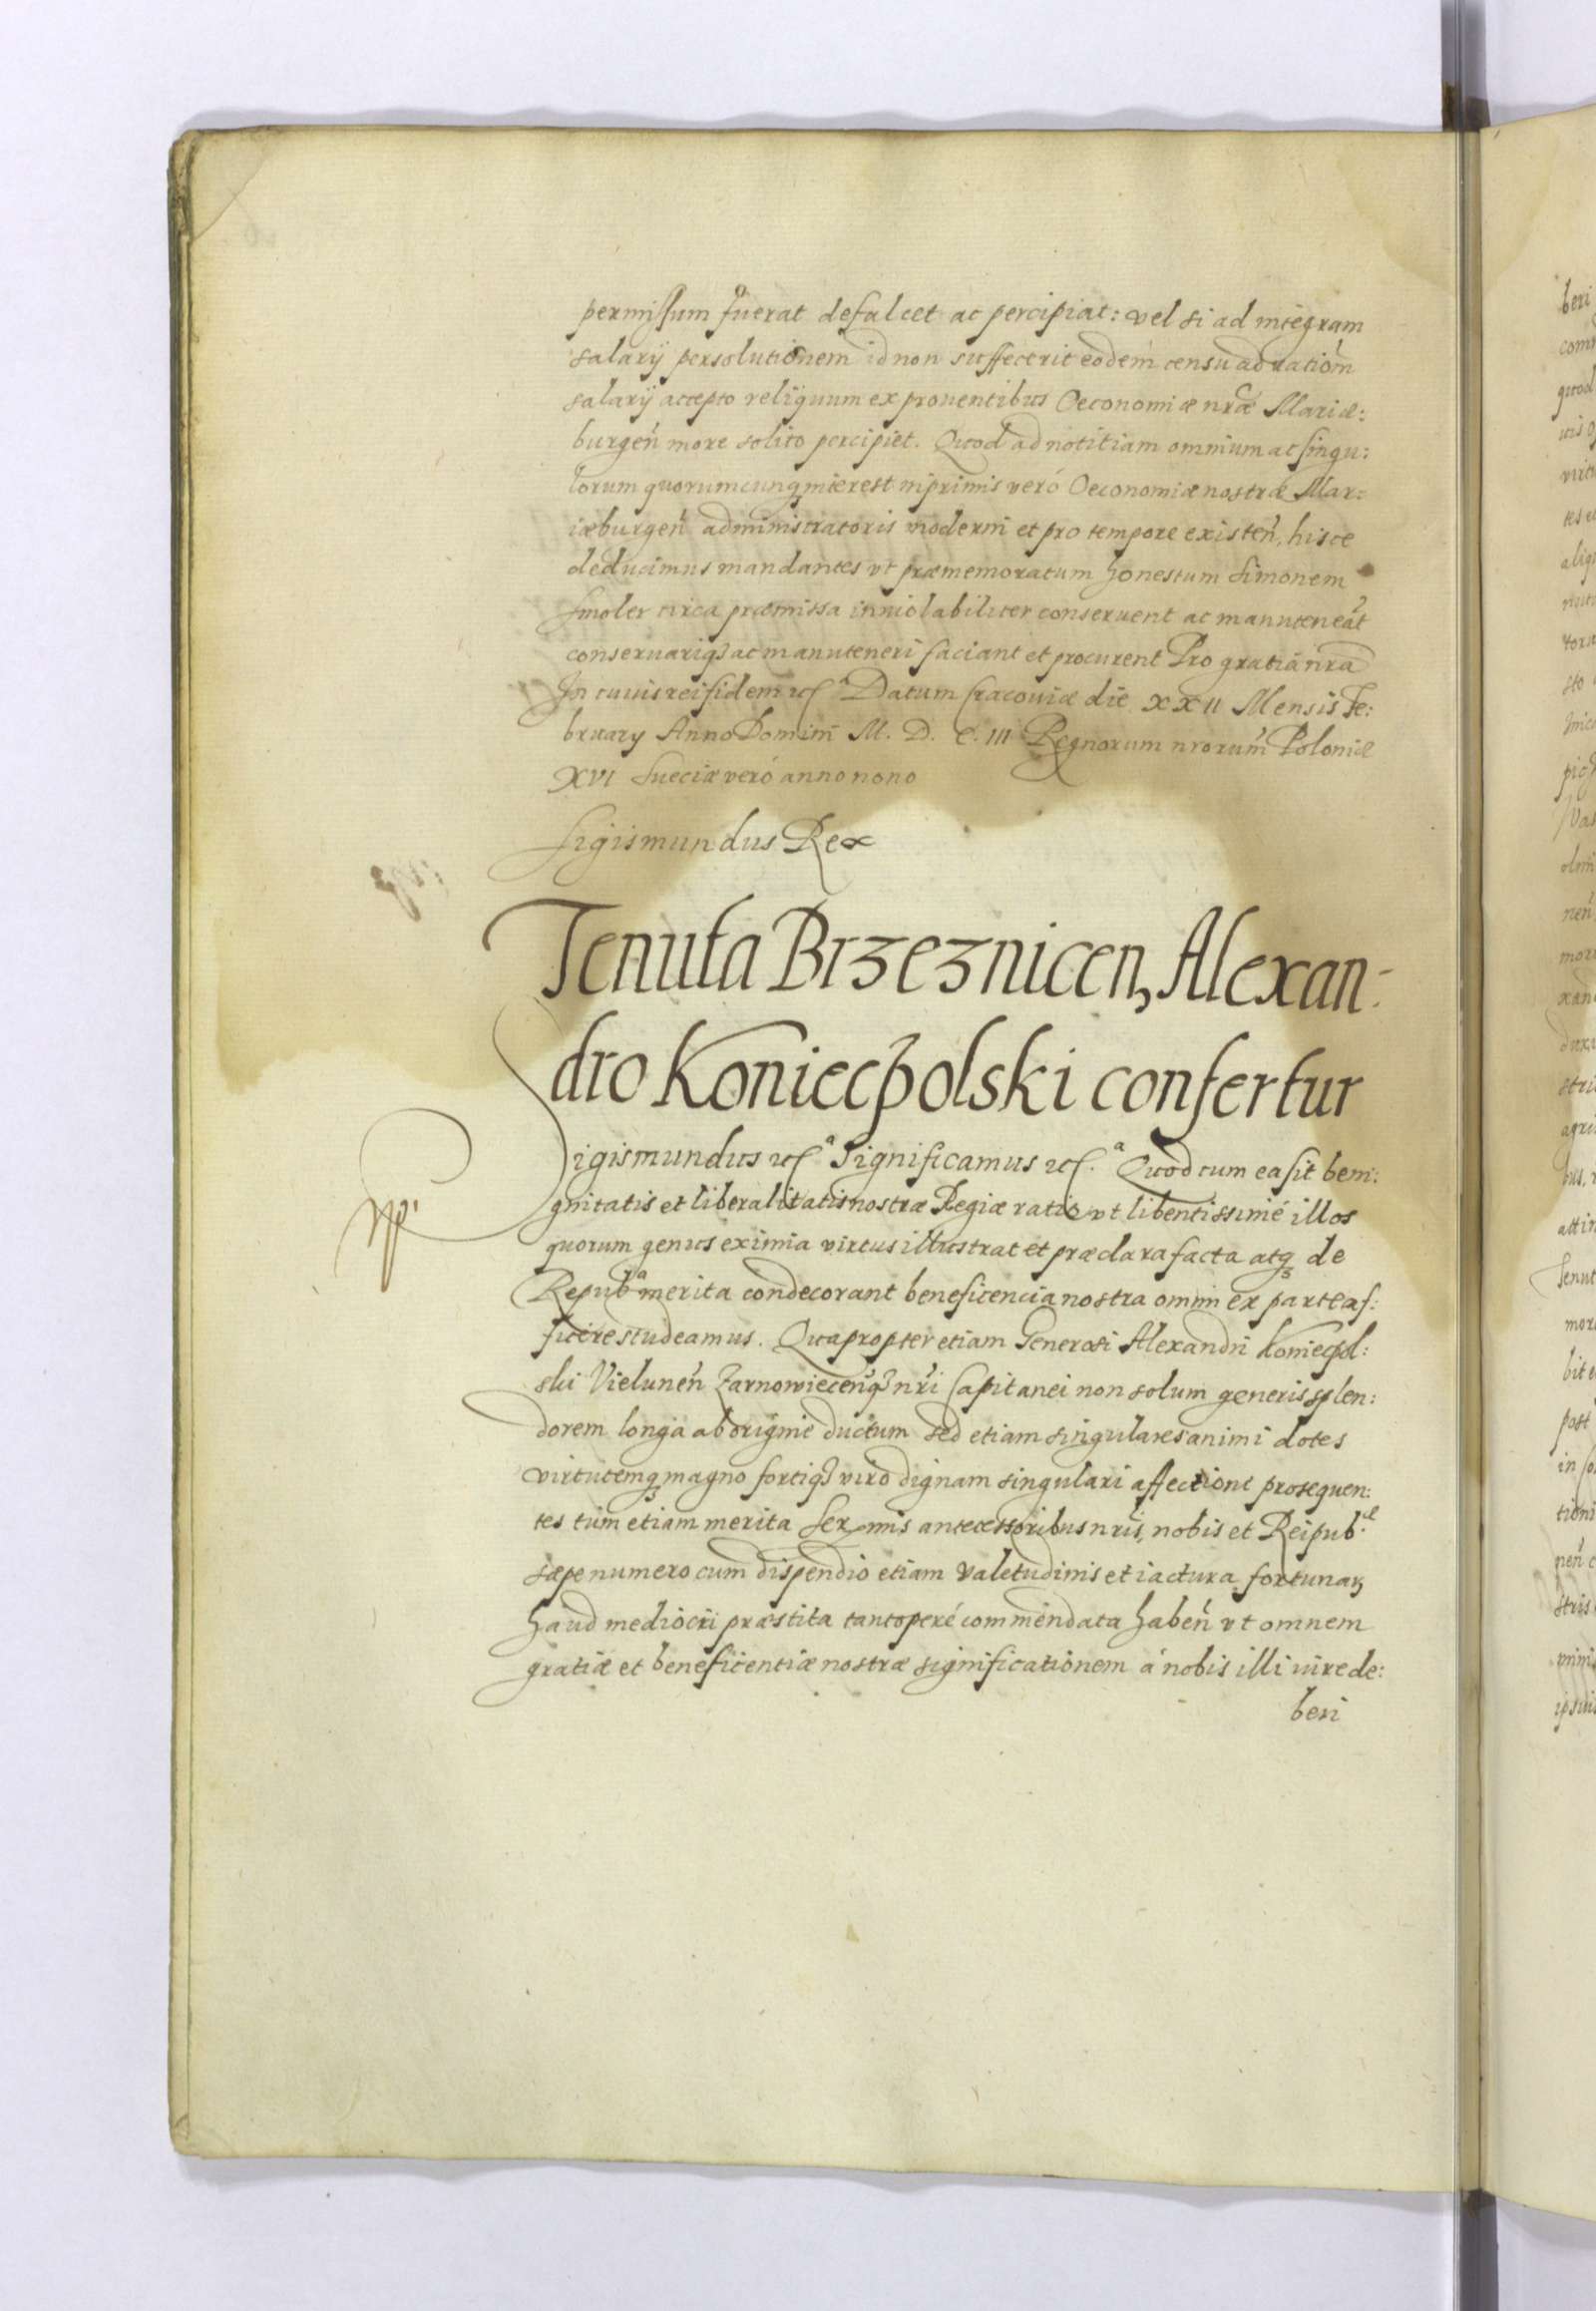 permissum fuerat defalcet ac percipiat: vel si ad integram
salarÿ persolutionem id non suffecerit eodem censu ad ratiom̃
salarÿ accepto reliquum ex prouentibus Oeconomiæ nrǣ Mariæ:
burgeñ more solito percipiet. Quod ad notitiam omnium ac singu:
lorum quorumcunq; interest inprimis veró Oeconomiæ nostræ Mar=
iæburgeñ administratoris moderni et pro tempore existeñ, hisce
deducimus mandantes vt præmemoratum honestum Simonem
Smoler circa præmissa inuiolabiliter conseruent ac manuteneãt
conseruariq; ac manuteneri faciant et procurent Pro gratia nrã
In cuius rei fidem etc.ª Datum Cracouiæ die XXII Mensis Fe:
bruary Anno Domini M. D. C. III Regnorum nrorum̃ Poloniæ
XVI Sueciæ veró anno nono
Sigismundus Rex
Tenuta Brzeznicen, Alexan-
dro Koniecpolski confertur
Sigismundus etc.ª Significamus etc.ª Quod cum ea sit beni:
gnitatis et liberalitatis nostræ Regiæ ratio vt libentissimé illos
quorum genus eximia virtus illustrat et præclara facta atq; de
Repub.ª merita condecorant beneficencia nostra omni ex parte af:
ficere studeamus. Quapropter etiam Generosi Alexandri Koniecpol:
ski Vieluneñ Zarnowieceñq; nrĩ Capitanei non solum generis splen:
dorem longa ab origine ductum sed etiam singulares animi dotes
virtutemq; magno fortiq; viro dignam singulari affectione prosequen:
tes tum etiam merita Ser.mis antecessoribus nrĩs, nobis et Reipub.æ
sæpenumero cum dispendio etiam valetudinis et iactura fortunaꝝ
haud mediocri præstita tantoperé commendata habeñ vt omnem
gratiæ et beneficentiæ nostræ significationem á nobis illi iure de:
beri